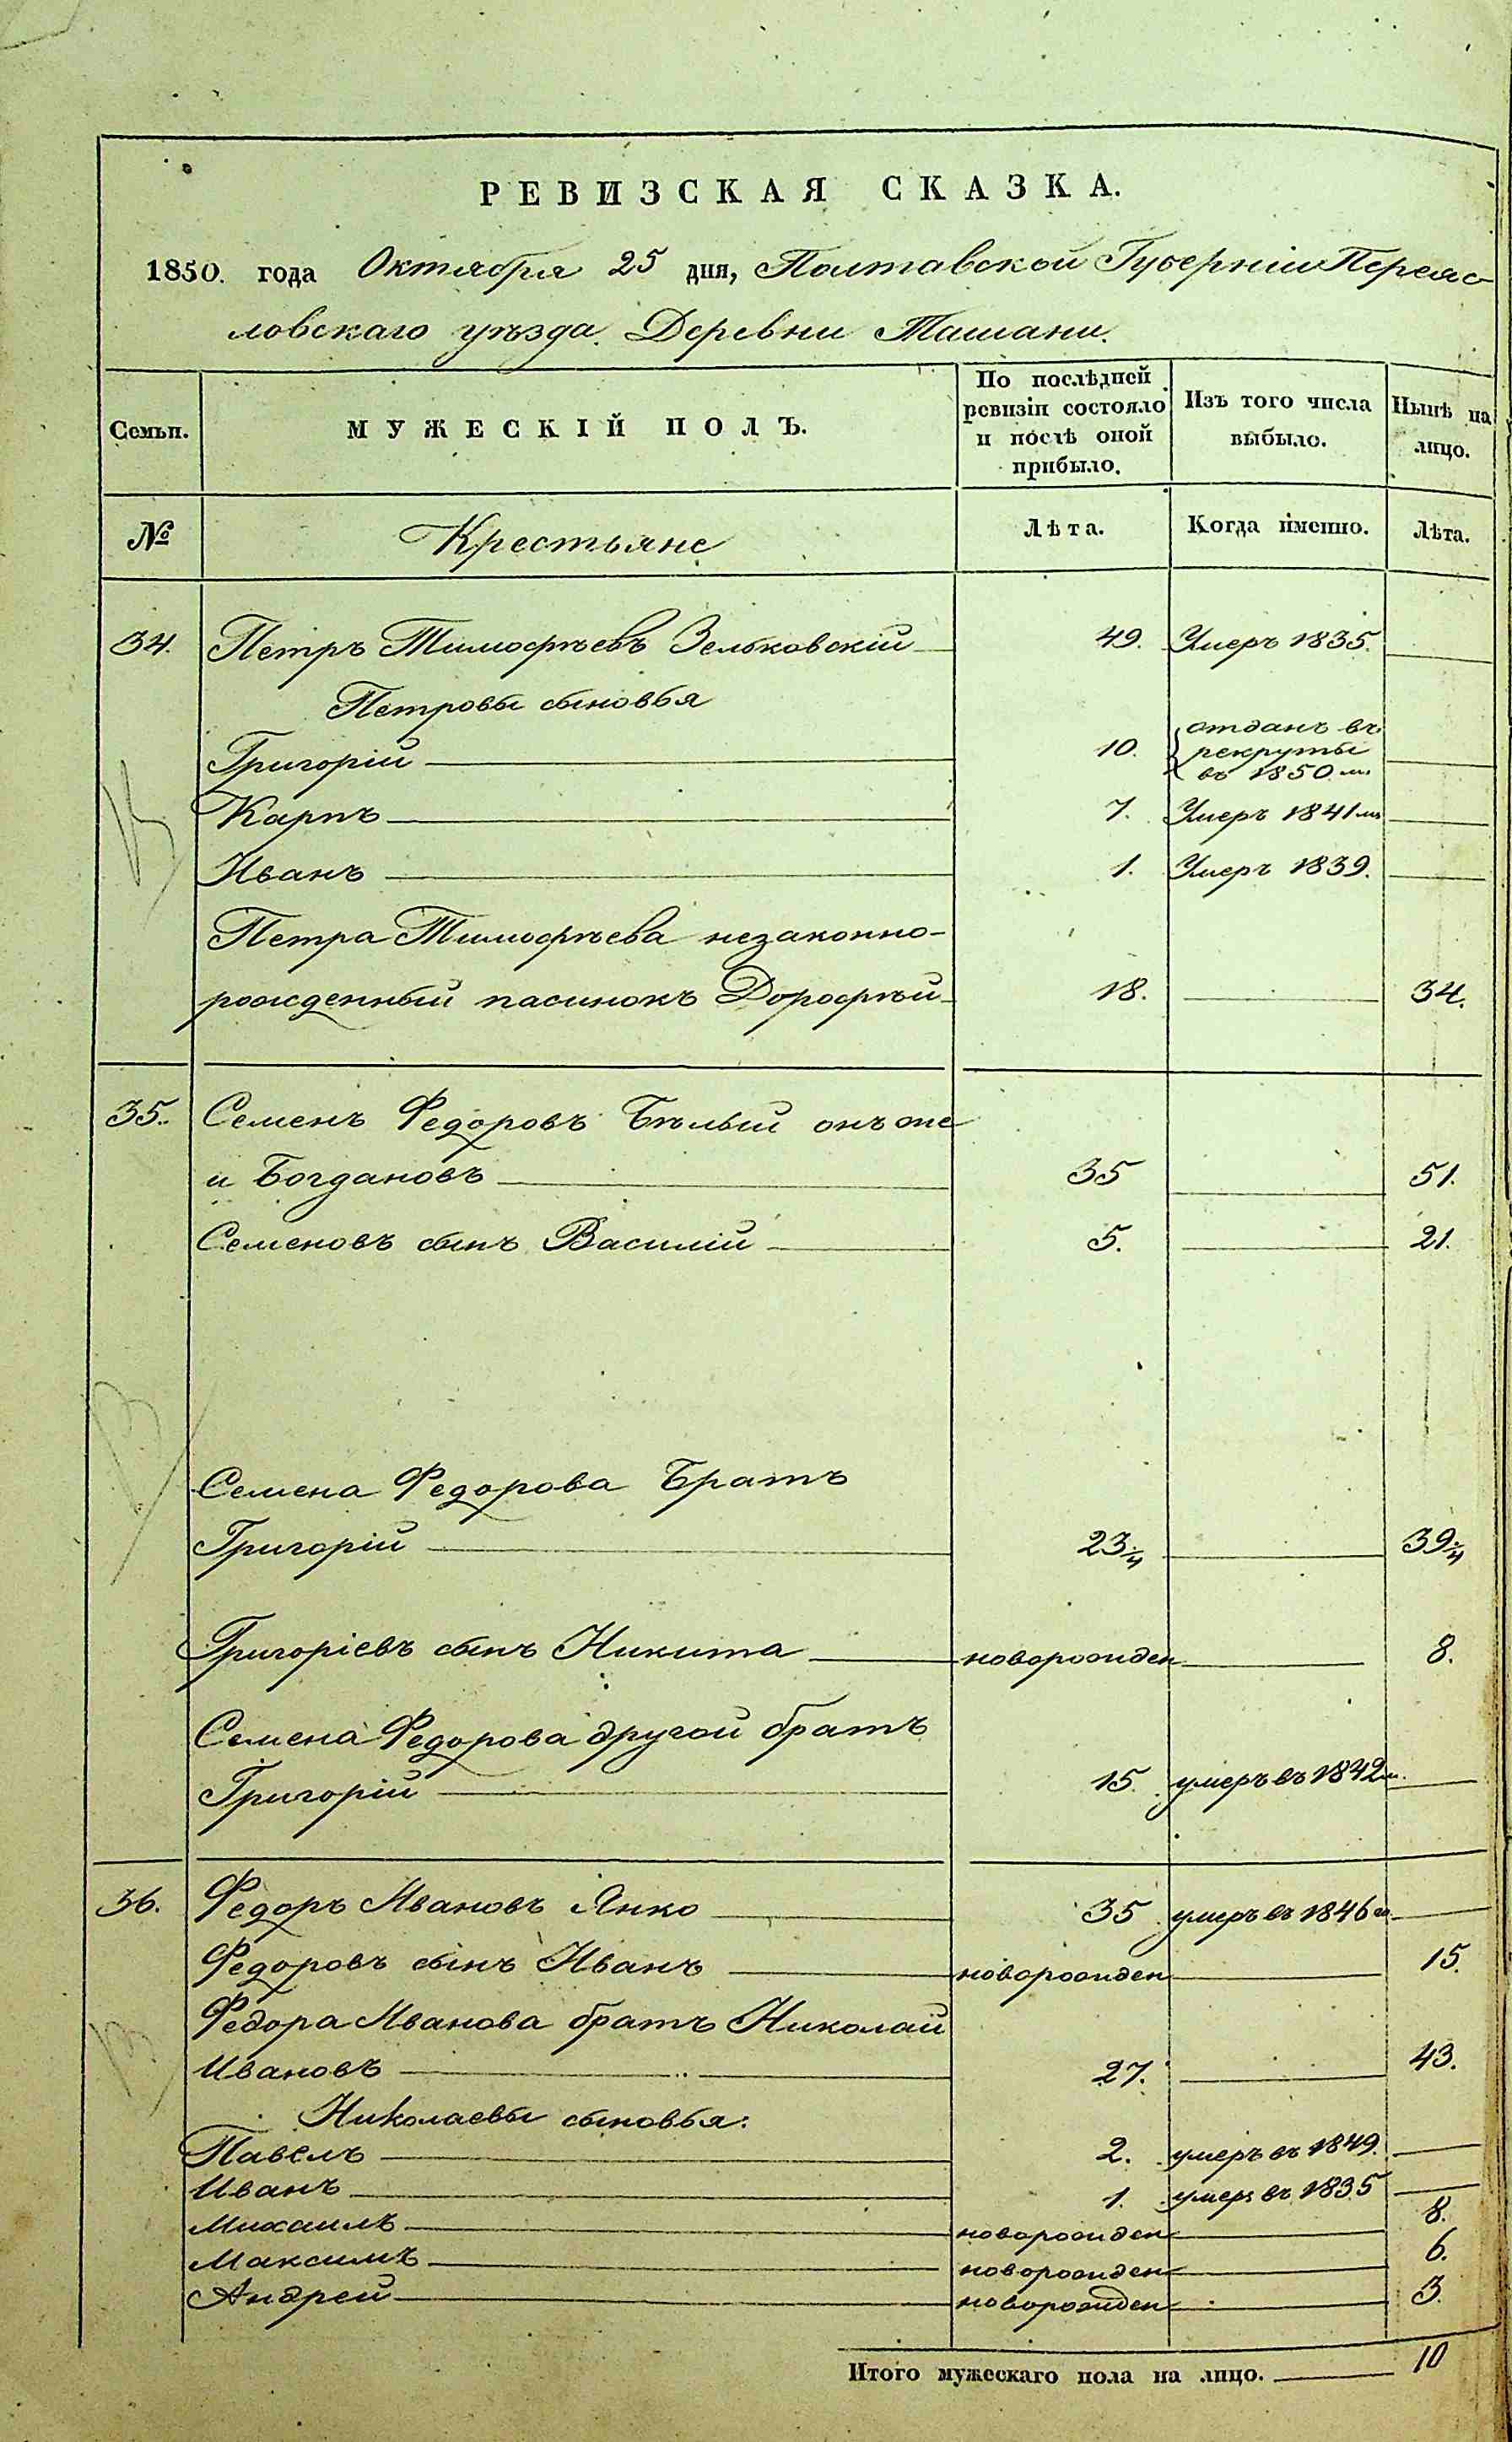 РЕВИЗСКАЯ СКАЗКА.
1850. года Октября 25 дня, Полтавской Губерніи Переяс-
ловскаго уѣзда. Деревни Ташани.
Семьи. МУЖЕСКІЙ ПОЛЪ. По послѣдней ревизіи состояло и послѣ оной прибыло. Изъ того числа выбыло. Нынѣ на лицо.
№ Крестьяне Лѣта. Когда именно. Лѣта.
34. Петръ Тимофѣевъ Зельковскій 49. Умеръ 1835.
Петровы сыновья
Григорій 10. отданъ въ рекруты въ 1850 м.
Карпъ 7. Умеръ 1841 мъ
Иванъ 1. Умеръ 1839.
Петра Тимофѣева незаконно-
рожденный пасинокъ Дорофѣй 18. 34.
35. Семенъ Федоровъ Бѣлый онъ же
и Богдановъ 35 51.
Семеновъ сынъ Василій 5. 21.
Семена Федорова Братъ
Григорій 23¼ 39¼
Григоріевъ сынъ Никита новорожден 8.
Семена Федорова другой братъ
Григорій 15. умеръ въ 1842 м.
36. Федоръ Ивановъ Янко 35 умеръ въ 1846 м
Федоровъ сынъ Иванъ новорожден 15.
Федора Иванова братъ Николай
Ивановъ 27. 43.
Николаевы сыновья:
Павелъ 2. умеръ въ 1849.
Иванъ 1. умеръ въ 1835
Михаилъ новорожден 8.
Максимъ новорожден 6.
Андрей новорожден 3.
Итого мужескаго пола на лицо. 10